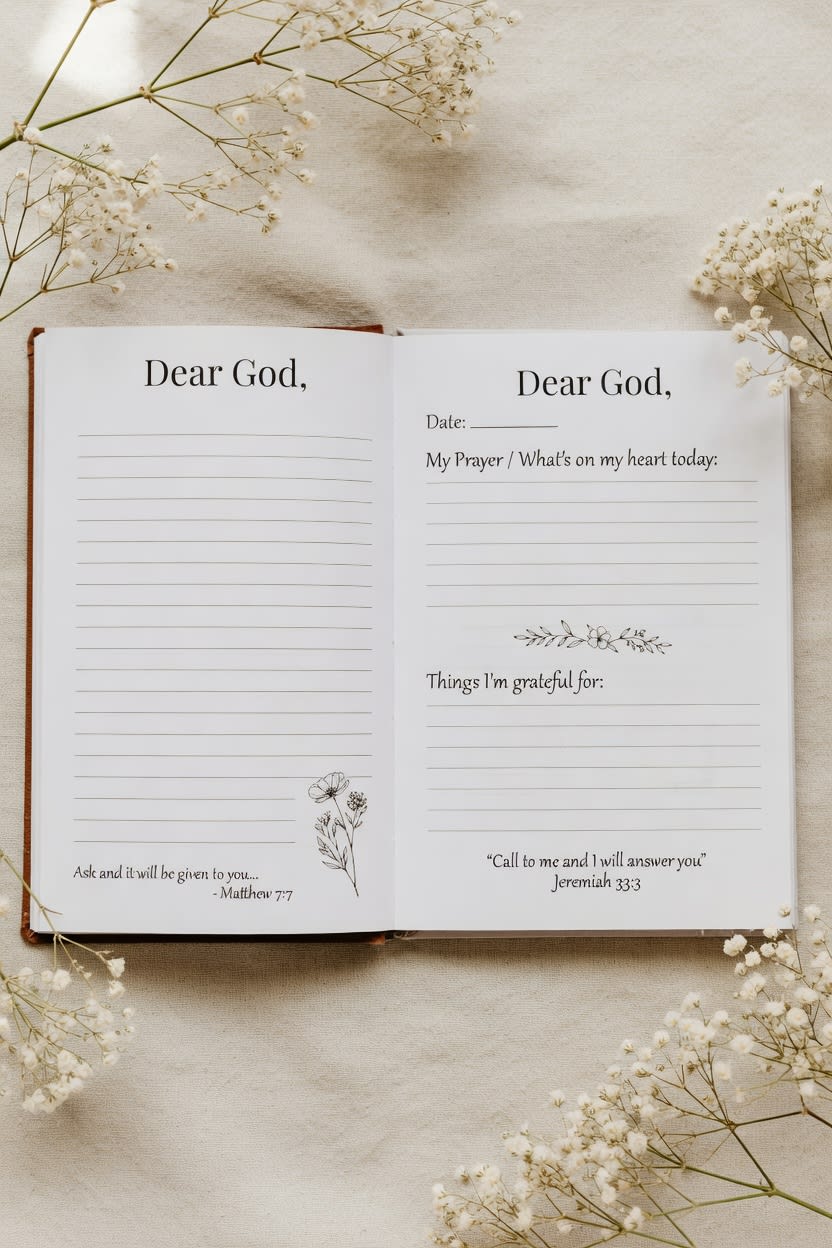 Dear God,
Ask and it will be given to you...
- Matthew 7:7
Dear God,
Date:
My Prayer / What's on my heart today:
Things I'm grateful for:
“Call to me and I will answer you”
Jeremiah 33:3